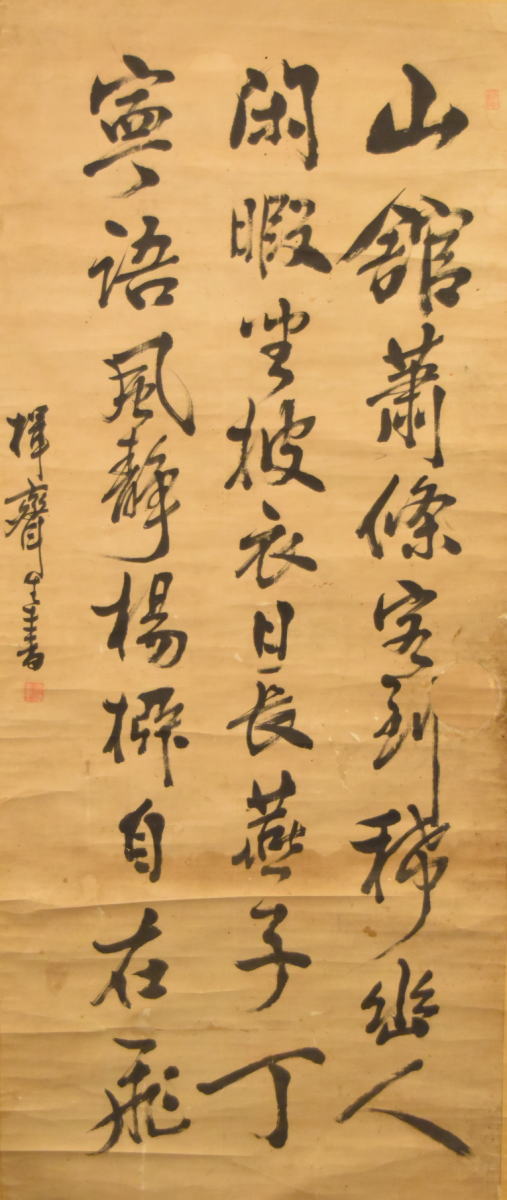 山館蕭條客到稀幽人
閑暇坐披衣日長燕子丁
寧語風靜楊柳自在飛
齋主書